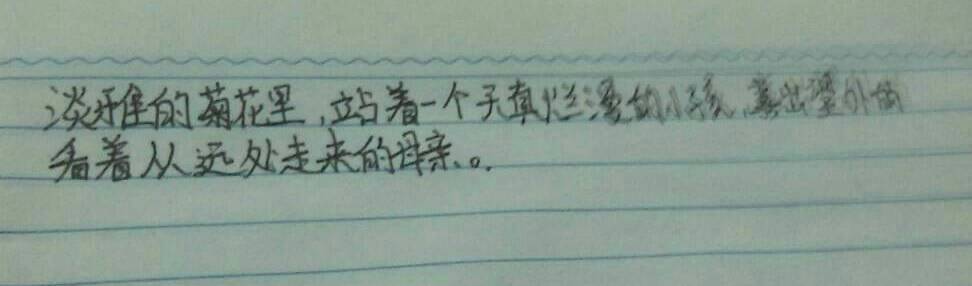 淡雅的菊花里,站着一个天真烂漫的小孩,喜出望外的
看着从远处走来的母亲。